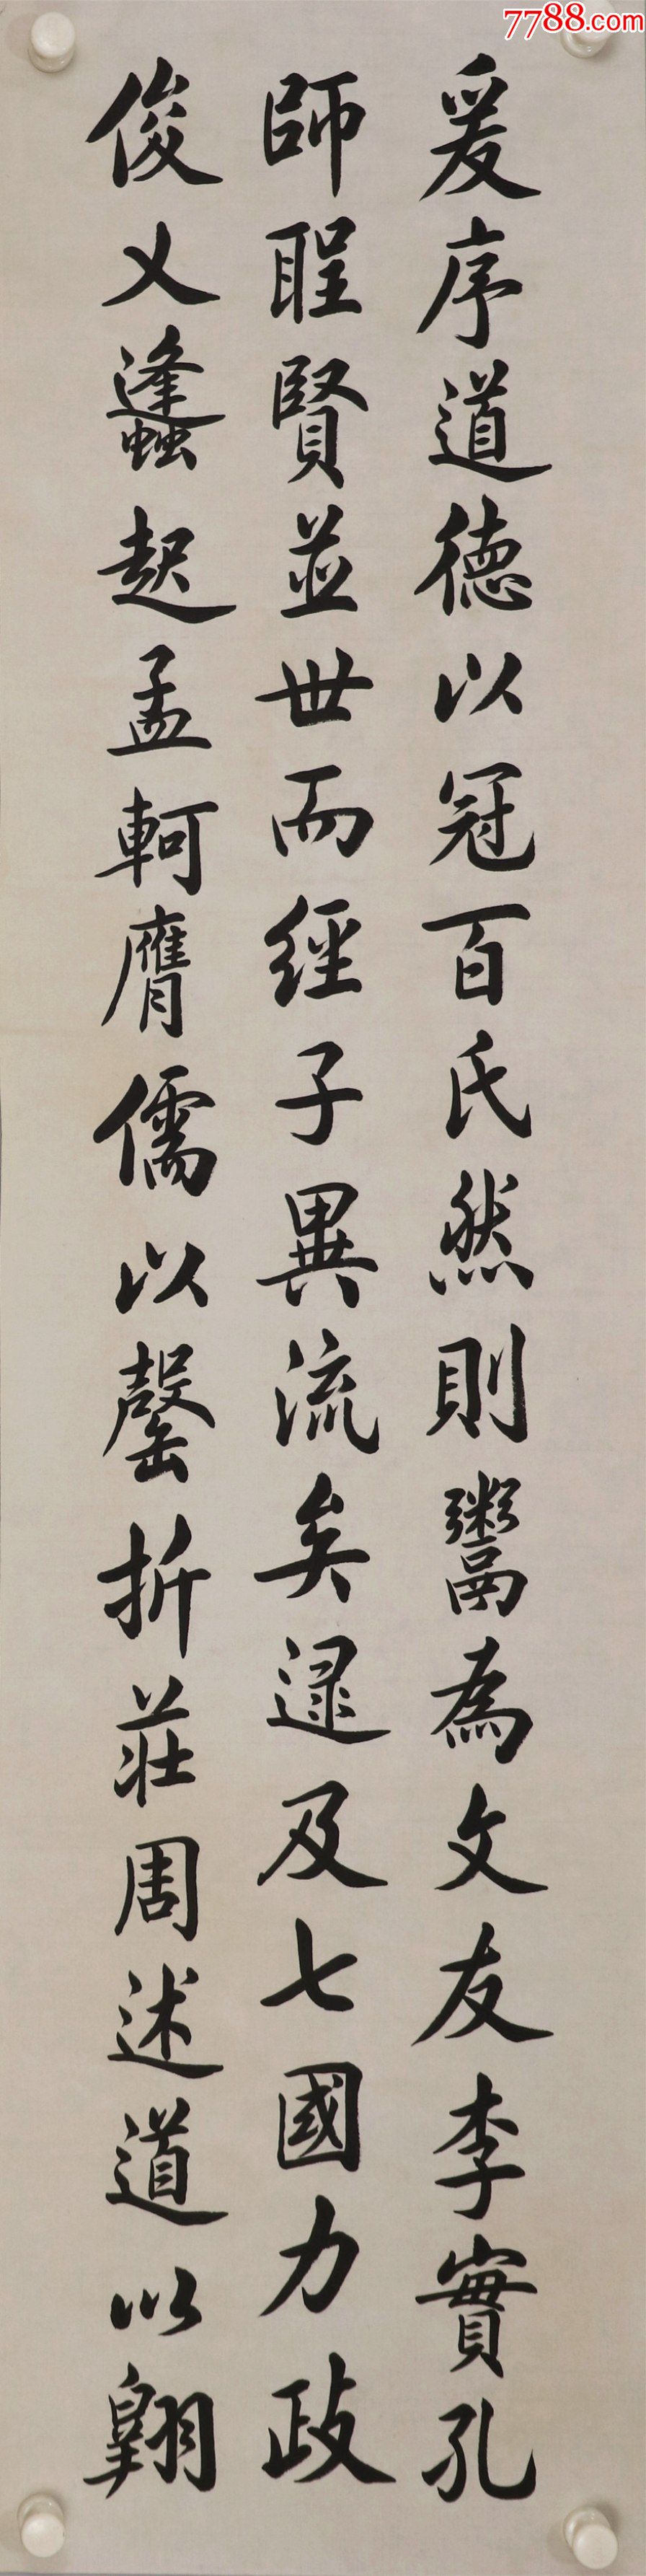 7788.com
爰序道德以冠百氏然則鬻為文友李實孔
師聖賢並世而經子異流矣逮及七國力政
俊乂蠭起孟軻膺儒以罄折莊周述道以翱